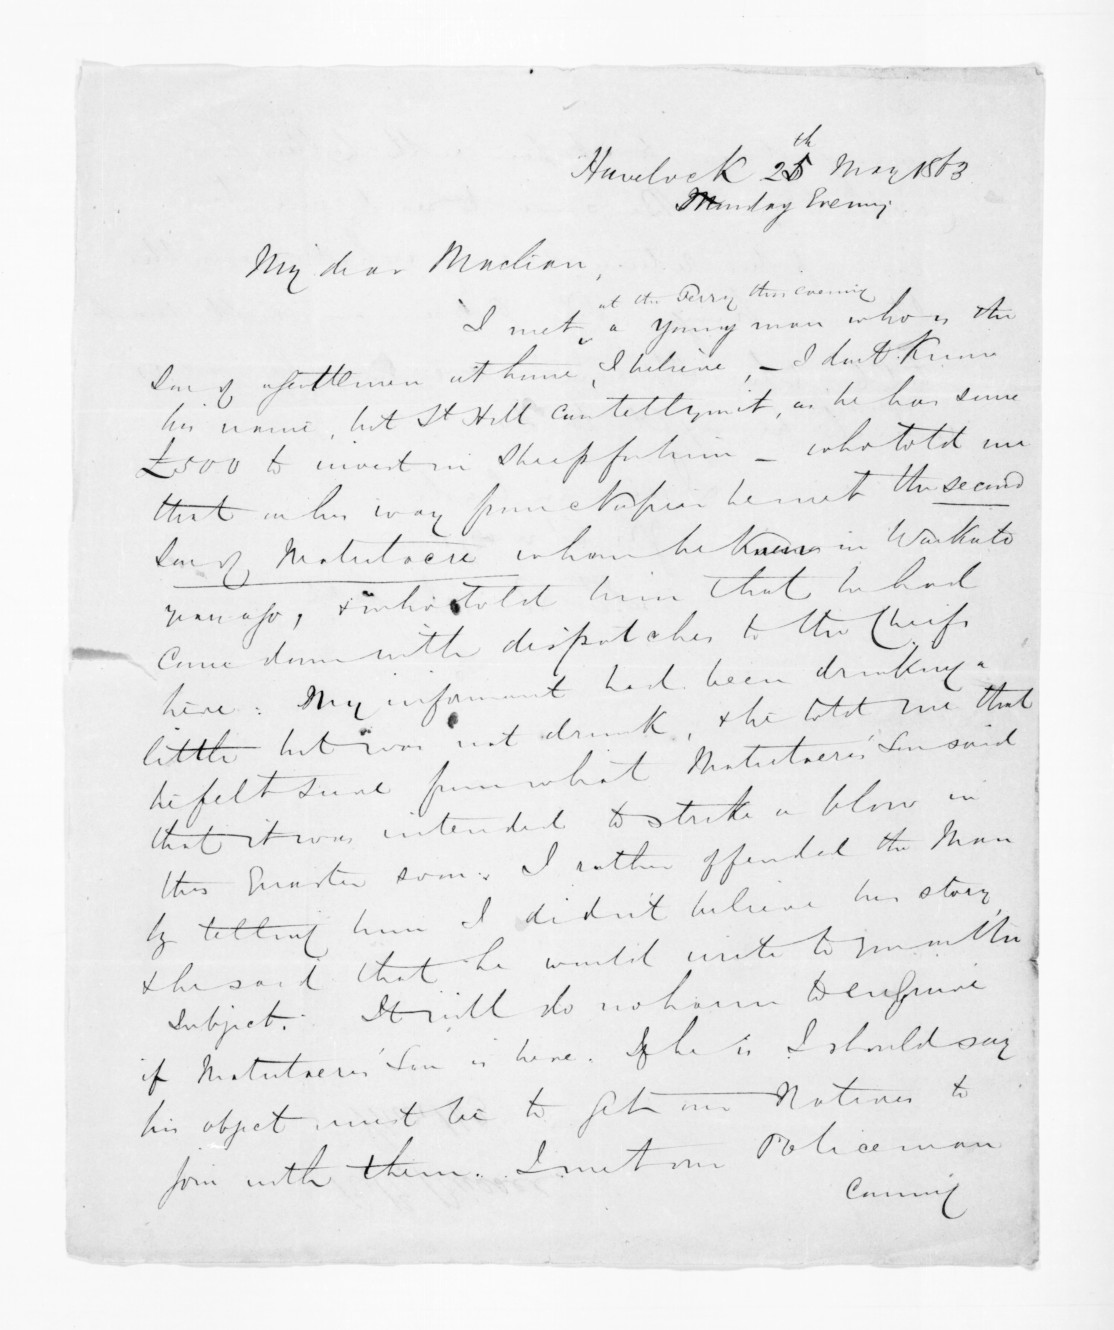 Havelock 25th May 1863
Monday Evening
My dear Maclean,
at the Ferry this evening
I met a young man who is the
Son of a gentleman at home, I believe, – I don't know
his name, but St Hill can tell you it, as he has some
£500 to invest in Sheep for him – who told me
that on his way from Napier he met the second
Son of Matutaere whom he knew in Waikato
years ago, & who told him that he had
come down with dispatches to the Chiefs
here. My informant had been drinking a
little but was not drunk, & he told me that
he felt sure from what Matutaere's Son said
that it was intended to strike a blow in
this Quarter soon. I rather offended the Man
by telling him I didn't believe his story,
& he said that he would write to you on the
Subject. It will do no harm to enquire
if Matutaere's Son is here. If he is I should say
his object must be to get our Natives to
join with them. I met our Policeman
coming